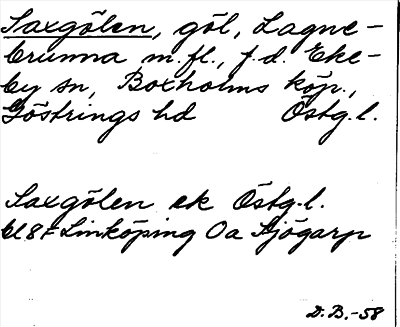 Saxgölen, göl, Lagne-
brunna m.fl., f.d. Eke-
by sn, Boxholms köp.,
Göstrings hd Östg.l.
Saxgölen ek Östg.l.
bl 8 F Linköping Oa Sjögarp
D.B.-58